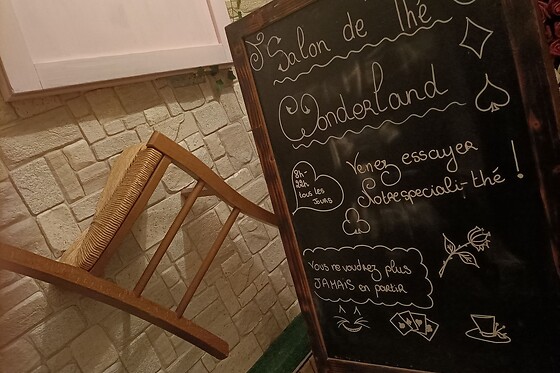 Salon de Thé
Wonderland
8h-
22h
tous les
JOURS
Venez essayer
Notre speciali-thé !
Vous ne voudrez plus
JAMAIS en partir